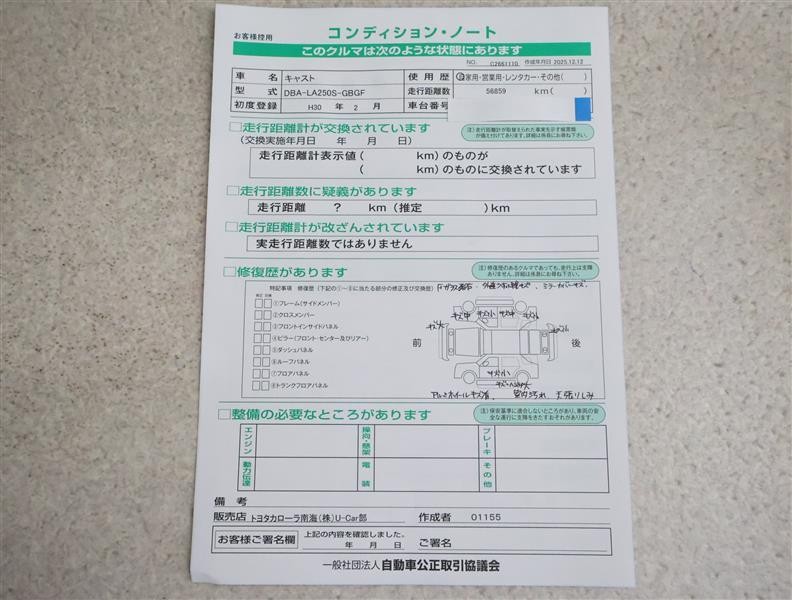 お客様控用
コンディション・ノート
このクルマは次のような状態にあります
NO. C2661110 作成年月日 2025.12.12
車名 キャスト 使用歴 自家用・営業用・レンタカー・その他( )
型式 DBA-LA250S-GBGF 走行距離数 56859 km( )
初度登録 H30 年 2 月 車台番号
□走行距離計が交換されています
注)走行距離計が取替えられた事実を示す帳票類が備え付けてあります。詳細は係員にお尋ね下さい。
(交換実施年月日 年 月 日)
走行距離計表示値( km)のものが
( km)のものに交換されています
□走行距離数に疑義があります
走行距離 ? km (推定 )km
□走行距離計が改ざんされています
実走行距離数ではありません
□修復歴があります
注)修復歴のあるクルマであっても、走行上は支障ありません。詳細は係員にお尋ね下さい。
特記事項 修復歴(下記の①~⑧に当たる部分の修正及び交換歴)
修正 交換
①フレーム(サイドメンバー)
②クロスメンバー
③フロントインサイドパネル
④ピラー(フロント・センター及びリアー)
⑤ダッシュパネル
⑥ルーフパネル
⑦フロアパネル
⑧トランクフロアパネル
キズ中 キズ小 キズ中 キズ小
キズ大
前 後
キズ小
アルミホイールキズ有 室内汚れ 天張りしみ
□整備の必要なところがあります
注)保安基準に適合しないところがあり、車両の安全な運行に支障をきたすおそれがあります。
エンジン 操向・懸架 ブレーキ
動力伝達 電装 その他
備考
販売店 トヨタカローラ南海(株)U-Car部 作成者 01155
お客様ご署名欄 上記の内容を確認しました。
年 月 日 ご署名
一般社団法人 自動車公正取引協議会